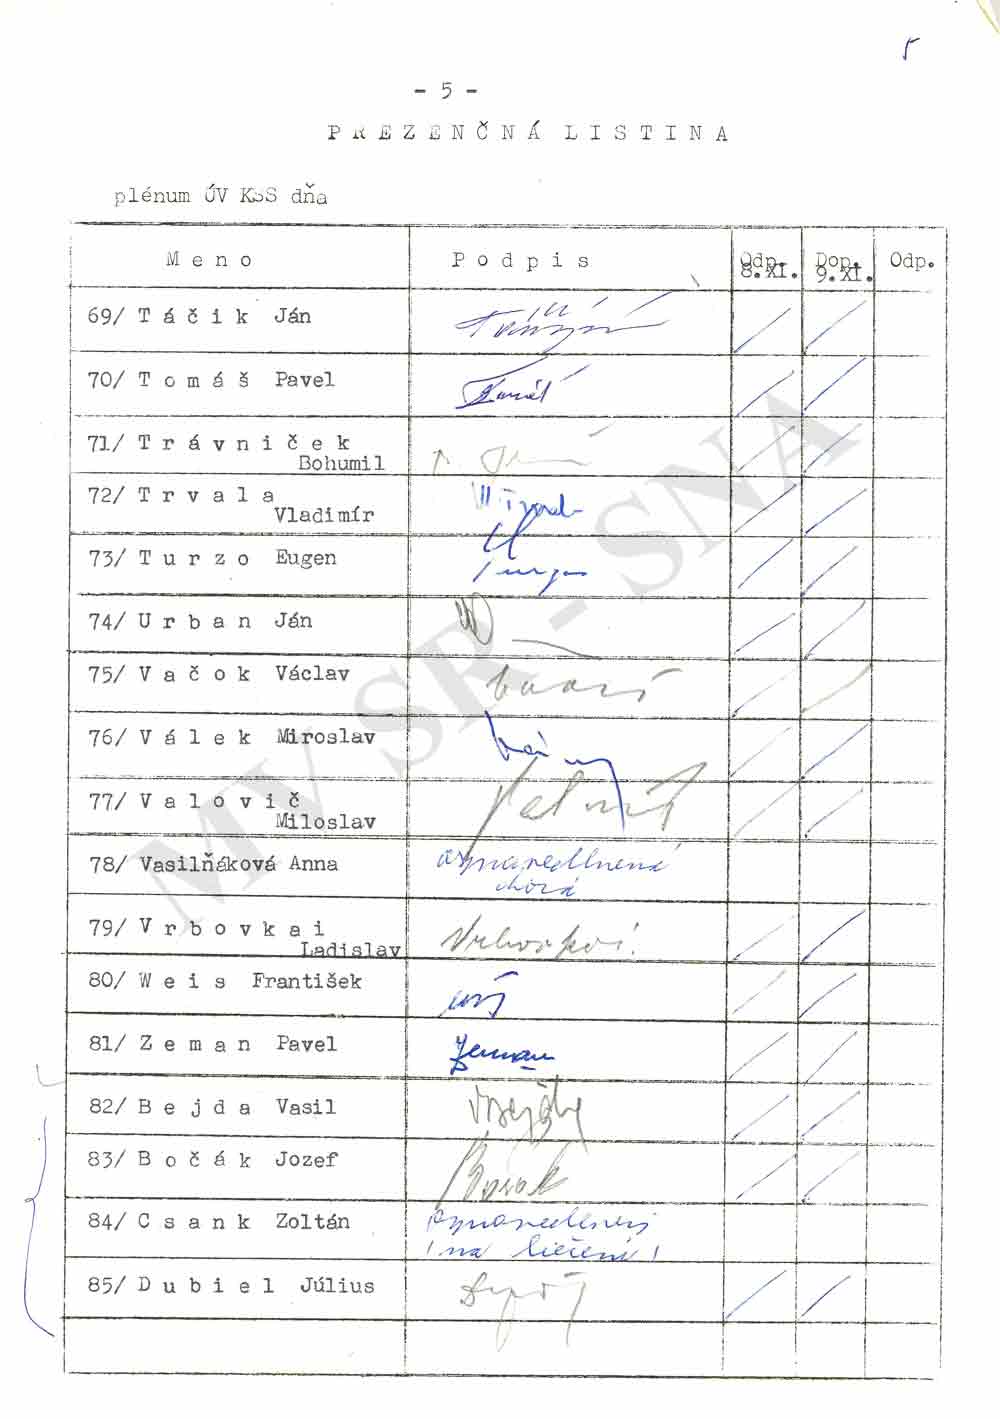 5
- 5 -
PREZENČNÁ LISTINA
plénum ÚV KSS dňa
Meno Podpis Odp. 8.XI. Dop. 9.XI. Odp.
69/ Táčik Ján
70/ Tomáš Pavel Tomáš
71/ Trávniček
Bohumil
72/ Trvala
Vladimír
73/ Turzo Eugen
74/ Urban Ján
75/ Vačok Václav
76/ Válek Miroslav
77/ Valovič
Miloslav
78/ Vasilňáková Anna ospravedlnená
chorá
79/ Vrbovkai
Ladislav
80/ Weis František
81/ Zeman Pavel Zeman
82/ Bejda Vasil
83/ Bočák Jozef
84/ Csank Zoltán ospravedlnený
/na liečení/
85/ Dubiel Július
MV SR - SNA